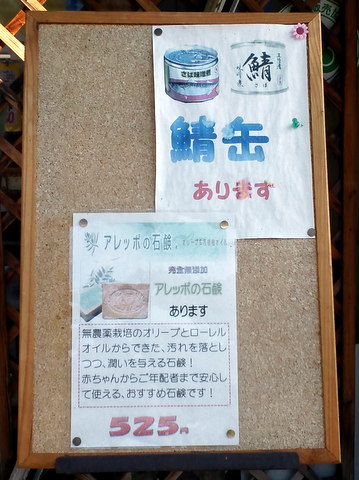 さば味噌煮
鯖
さば
鯖缶
あります
アレッポの石鹸
完全無添加
アレッポの石鹸
あります
無農薬栽培のオリーブとローレル
オイルからできた、汚れを落とし
つつ、潤いを与える石鹸！
赤ちゃんからご年配者まで安心し
て使える、おすすめ石鹸です！
525円